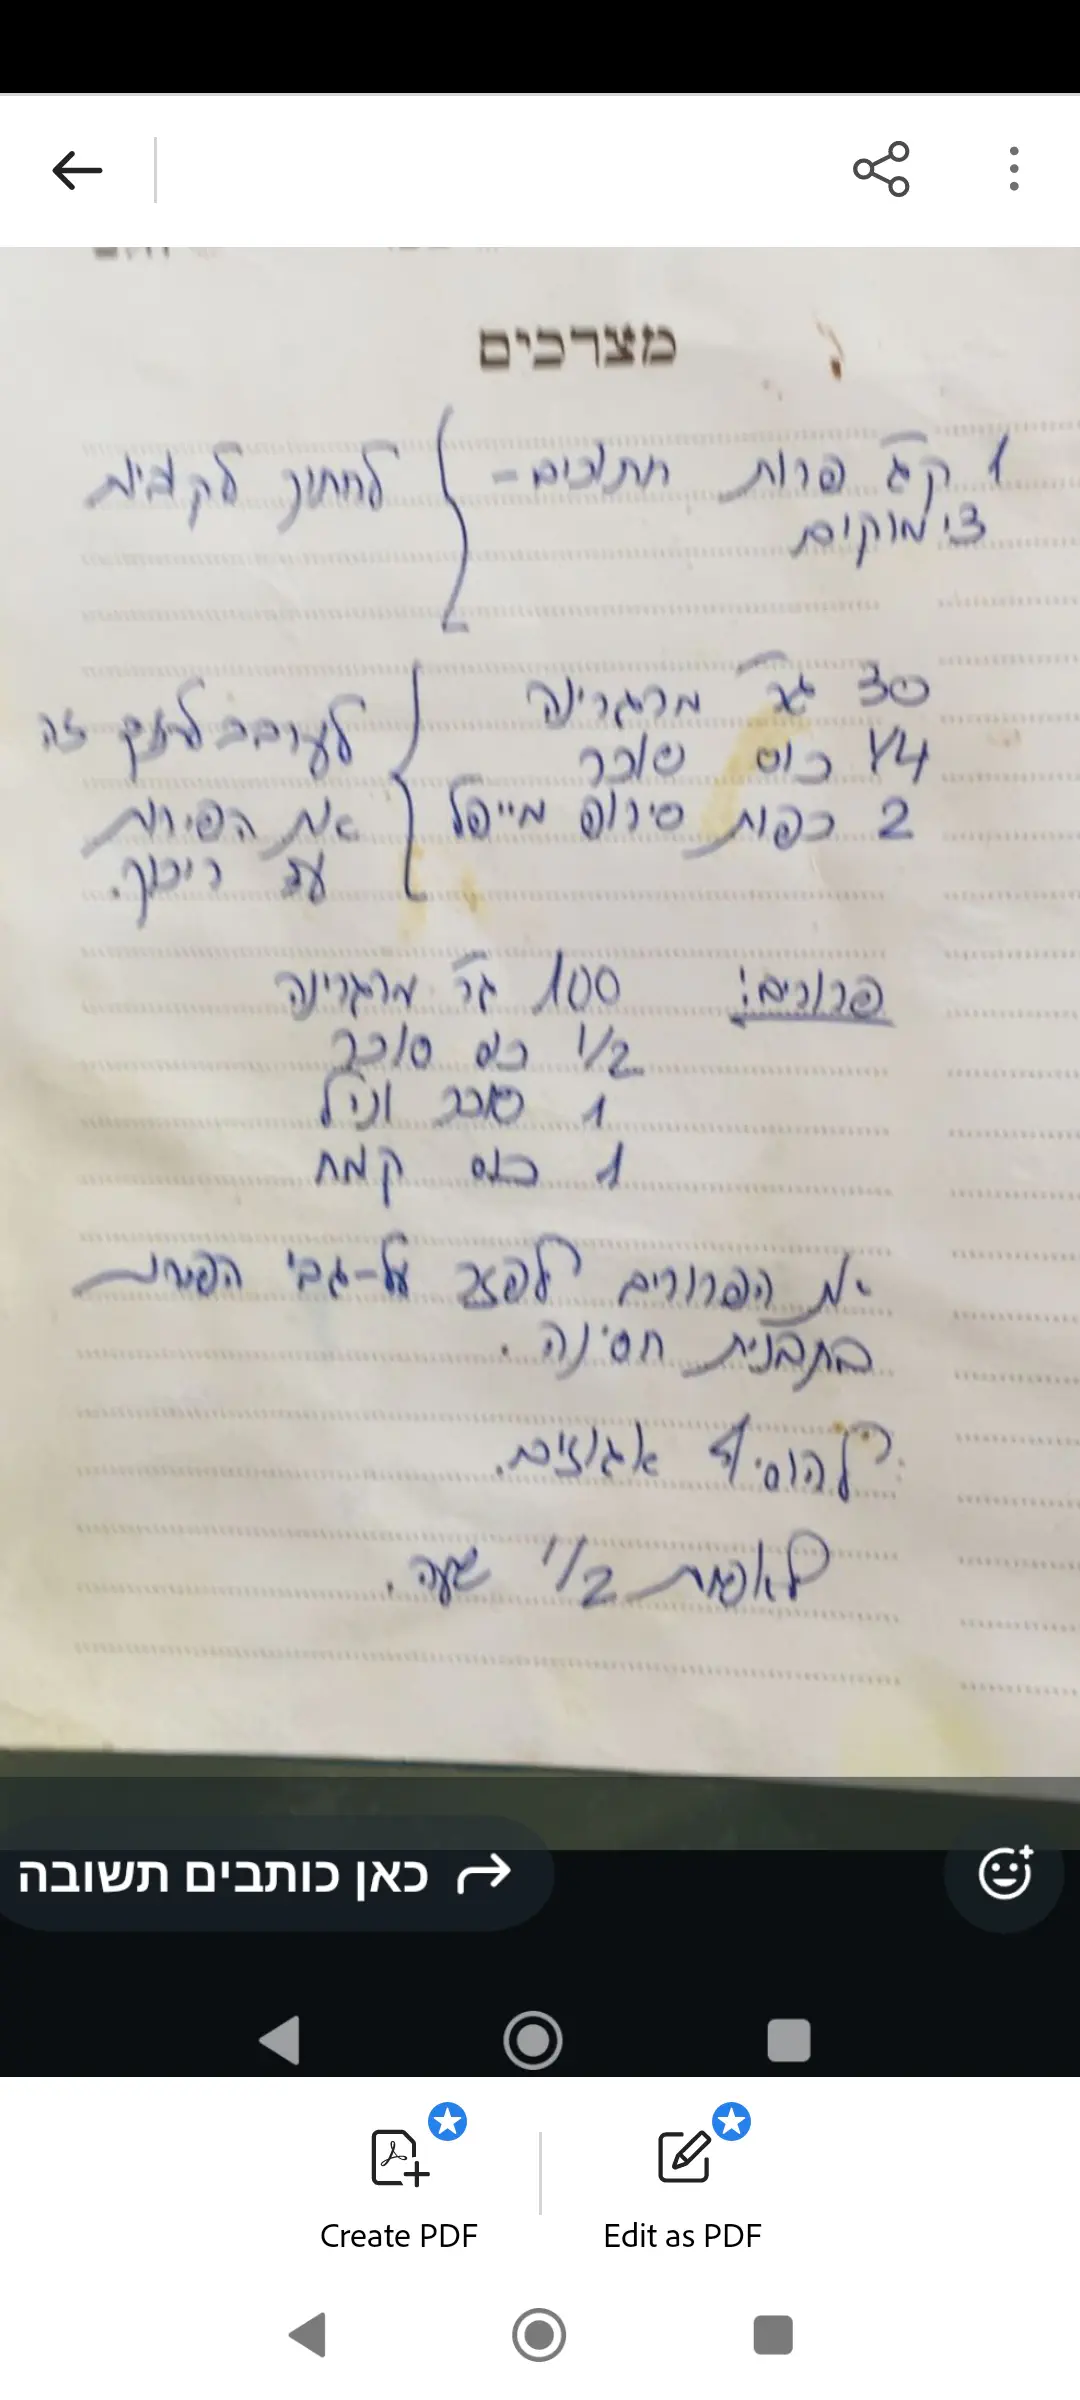 מצרכים
1 ק"ג פרות חתוכים - לחתוך לקוביות
צימוקים
30 גר' מרגרינה
1/4 כוס סוכר
2 כפות סירופ מייפל
לערבב
זה
את הפירות
עד ריכוך.
פרורים: 100 גר' מרגרינה
1/2 כוס סוכר
1 סוכר וניל
1 כוס קמח
את הפרורים לפזר על-גבי הפירות
בתבנית חסינה.
להוסיף אגוזים.
לאפות 1/2 שעה.
כאן כותבים תשובה
Create PDF
Edit as PDF